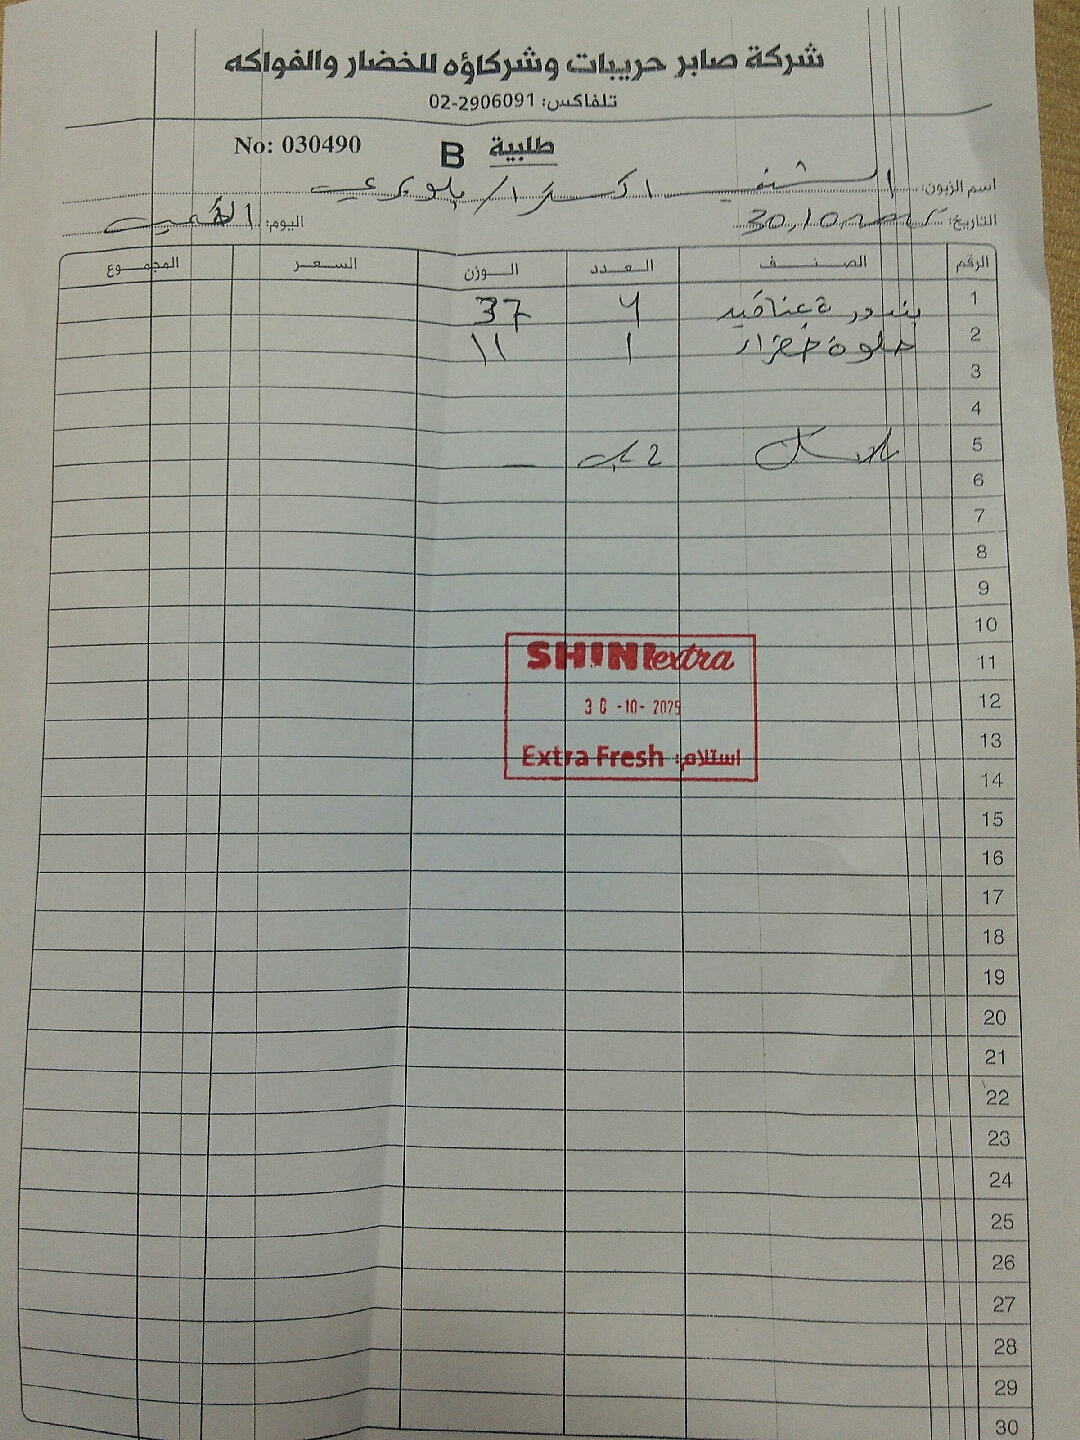 شركة صابر حريبات وشركاؤه للخضار والفواكه
تلفاكس: 02-2906091
No: 030490 B طلبية
اسم الزبون: الشني اكسترا /
التاريخ: 30,10 اليوم: الخميس
الرقم الصنف العدد الوزن السعر المجموع
1 بندورة عناقيد 4 37
2 حلوة خضراء 1 11
3
4
5 2 —
6
7
8
9
10
11
12
13
14
15
16
17
18
19
20
21
22
23
24
25
26
27
28
29
30
SHINI extra
30 -10- 2025
Extra Fresh استلام: